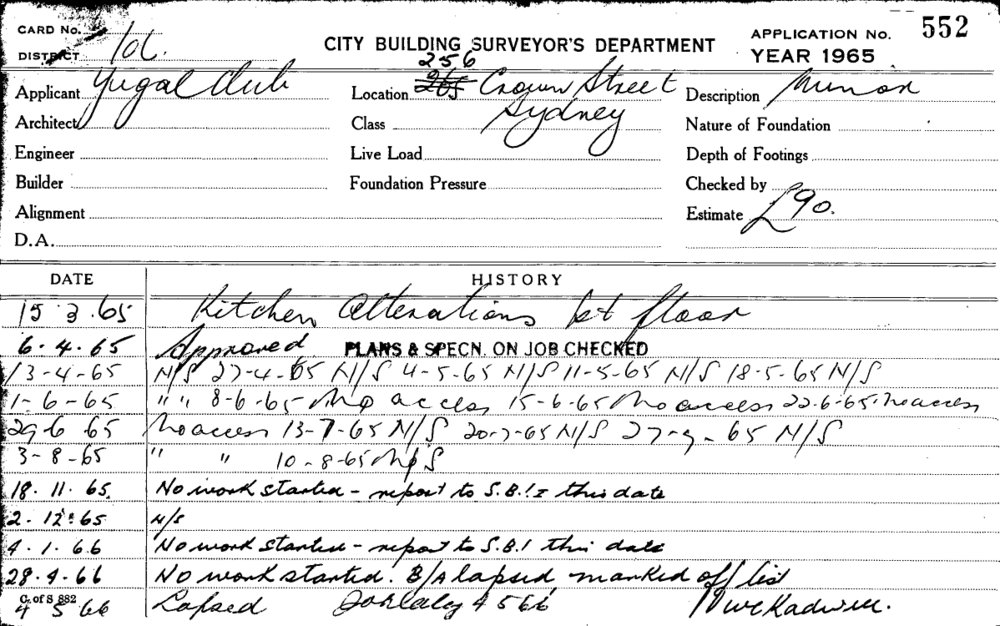 CARD No.
DISTRICT
CITY BUILDING SURVEYOR'S DEPARTMENT
APPLICATION No. 552
YEAR 1965
256
Applicant Yugal Club
Location 265 Crown Street
Description Minor
Architect
Class Sydney
Nature of Foundation
Engineer
Live Load
Depth of Footings
Builder
Foundation Pressure
Checked by
Alignment
Estimate £90.
D.A.
DATE HISTORY
15 3.65 Kitchen alterations 1st floor
6.4.65 Approved PLANS & SPECN. ON JOB CHECKED
13-4-65 N/S 27-4-65 N/S 4-5-65 N/S 11-5-65 N/S 18-5-65 N/S
1-6-65 " " 8-6-65 No access 15-6-65 No access 22-6-65 no access
29 6 65 No access 13-7-65 N/S 20-7-65 N/S 27-7-65 N/S
3-8-65 " " 10-8-65 N/S
18.11.65. No work started - report to S.B.I this date
2.12.65 N/S
4.1.66 No work started - report to S.B.I this date
28.4.66 No work started. B/A lapsed marked off list
G. of S 882
4 5 66 Lapsed 4 5 66